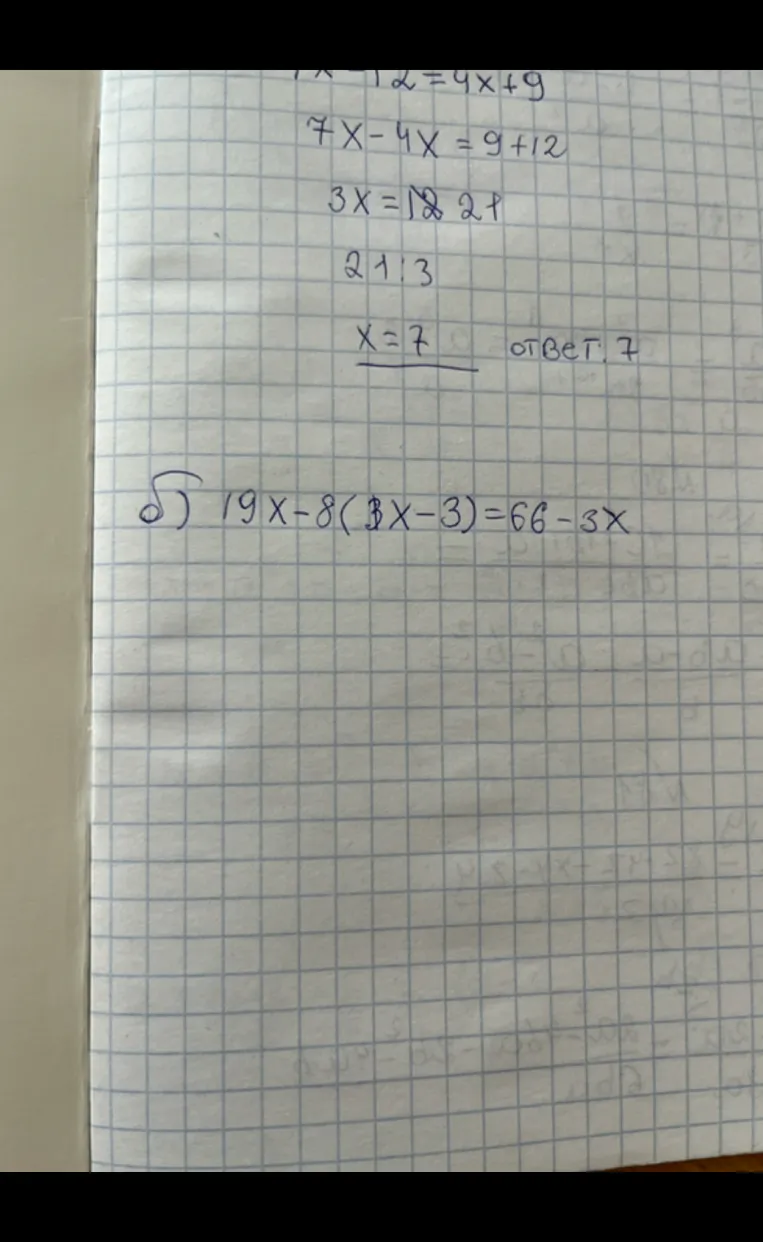 7x-12=4x+9
7x-4x=9+12
3x= 21
21:3
x=7 ответ. 7
б) 19x-8(x-3)=66-3x